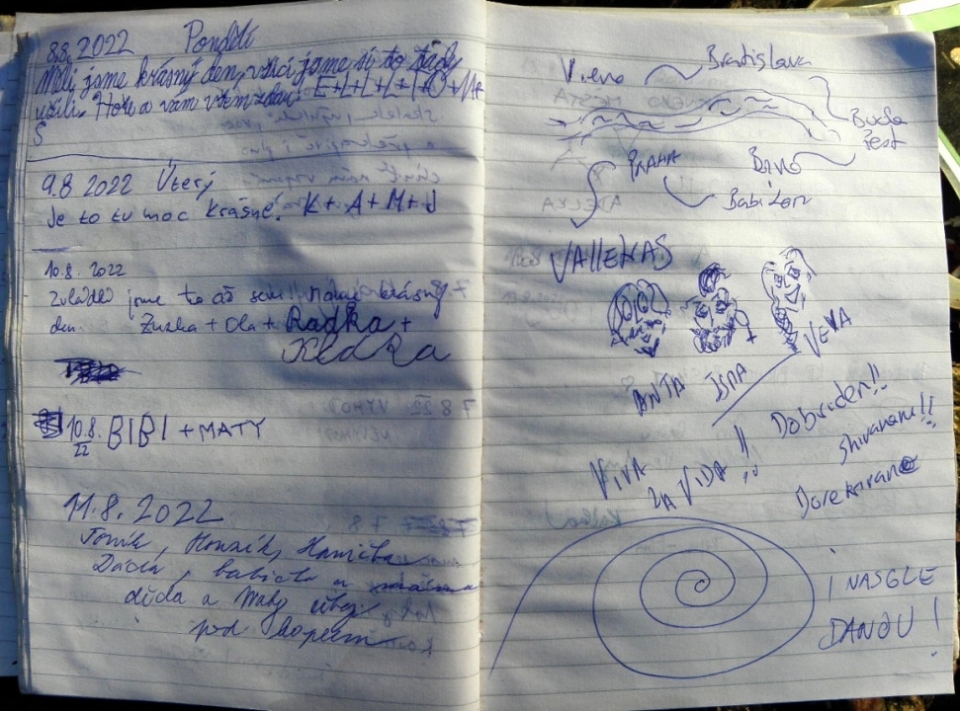 8.8. 2022 Pondělí
Měli jsme krásný den, všici jsme si to tady
užili. Hoto a vám všem E+L+L+L+I+O+M+
Š
9.8 2022 Úterý
Je to tu moc krásné. K + A + M + J
10.8. 2022
jsme to až sem!! krásný
den. Zuzka + Ola + Radka +
10.8. BIBI + MATY
22
11.8. 2022
Tomík, Honzík, Hanička
babička a
děda a Maty
pod kopcem
Viena Bratislava
Buda
Pest
PRAHA BRNO
Babilon
VALLEKAS
ANTA ISRA VEKA
Dobriden!!
Shivanam!!
VIVA
LA VIDA!!
¡ NASGLE
DANDU!